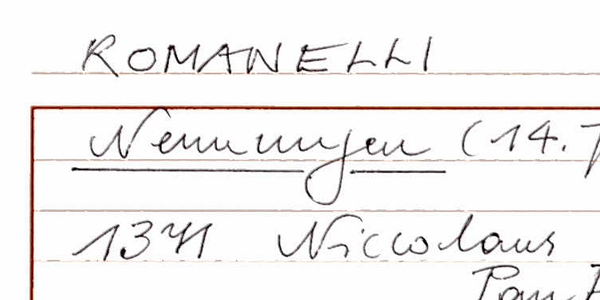 ROMANELLI
Nennungen (14.
1371 Niccolaus